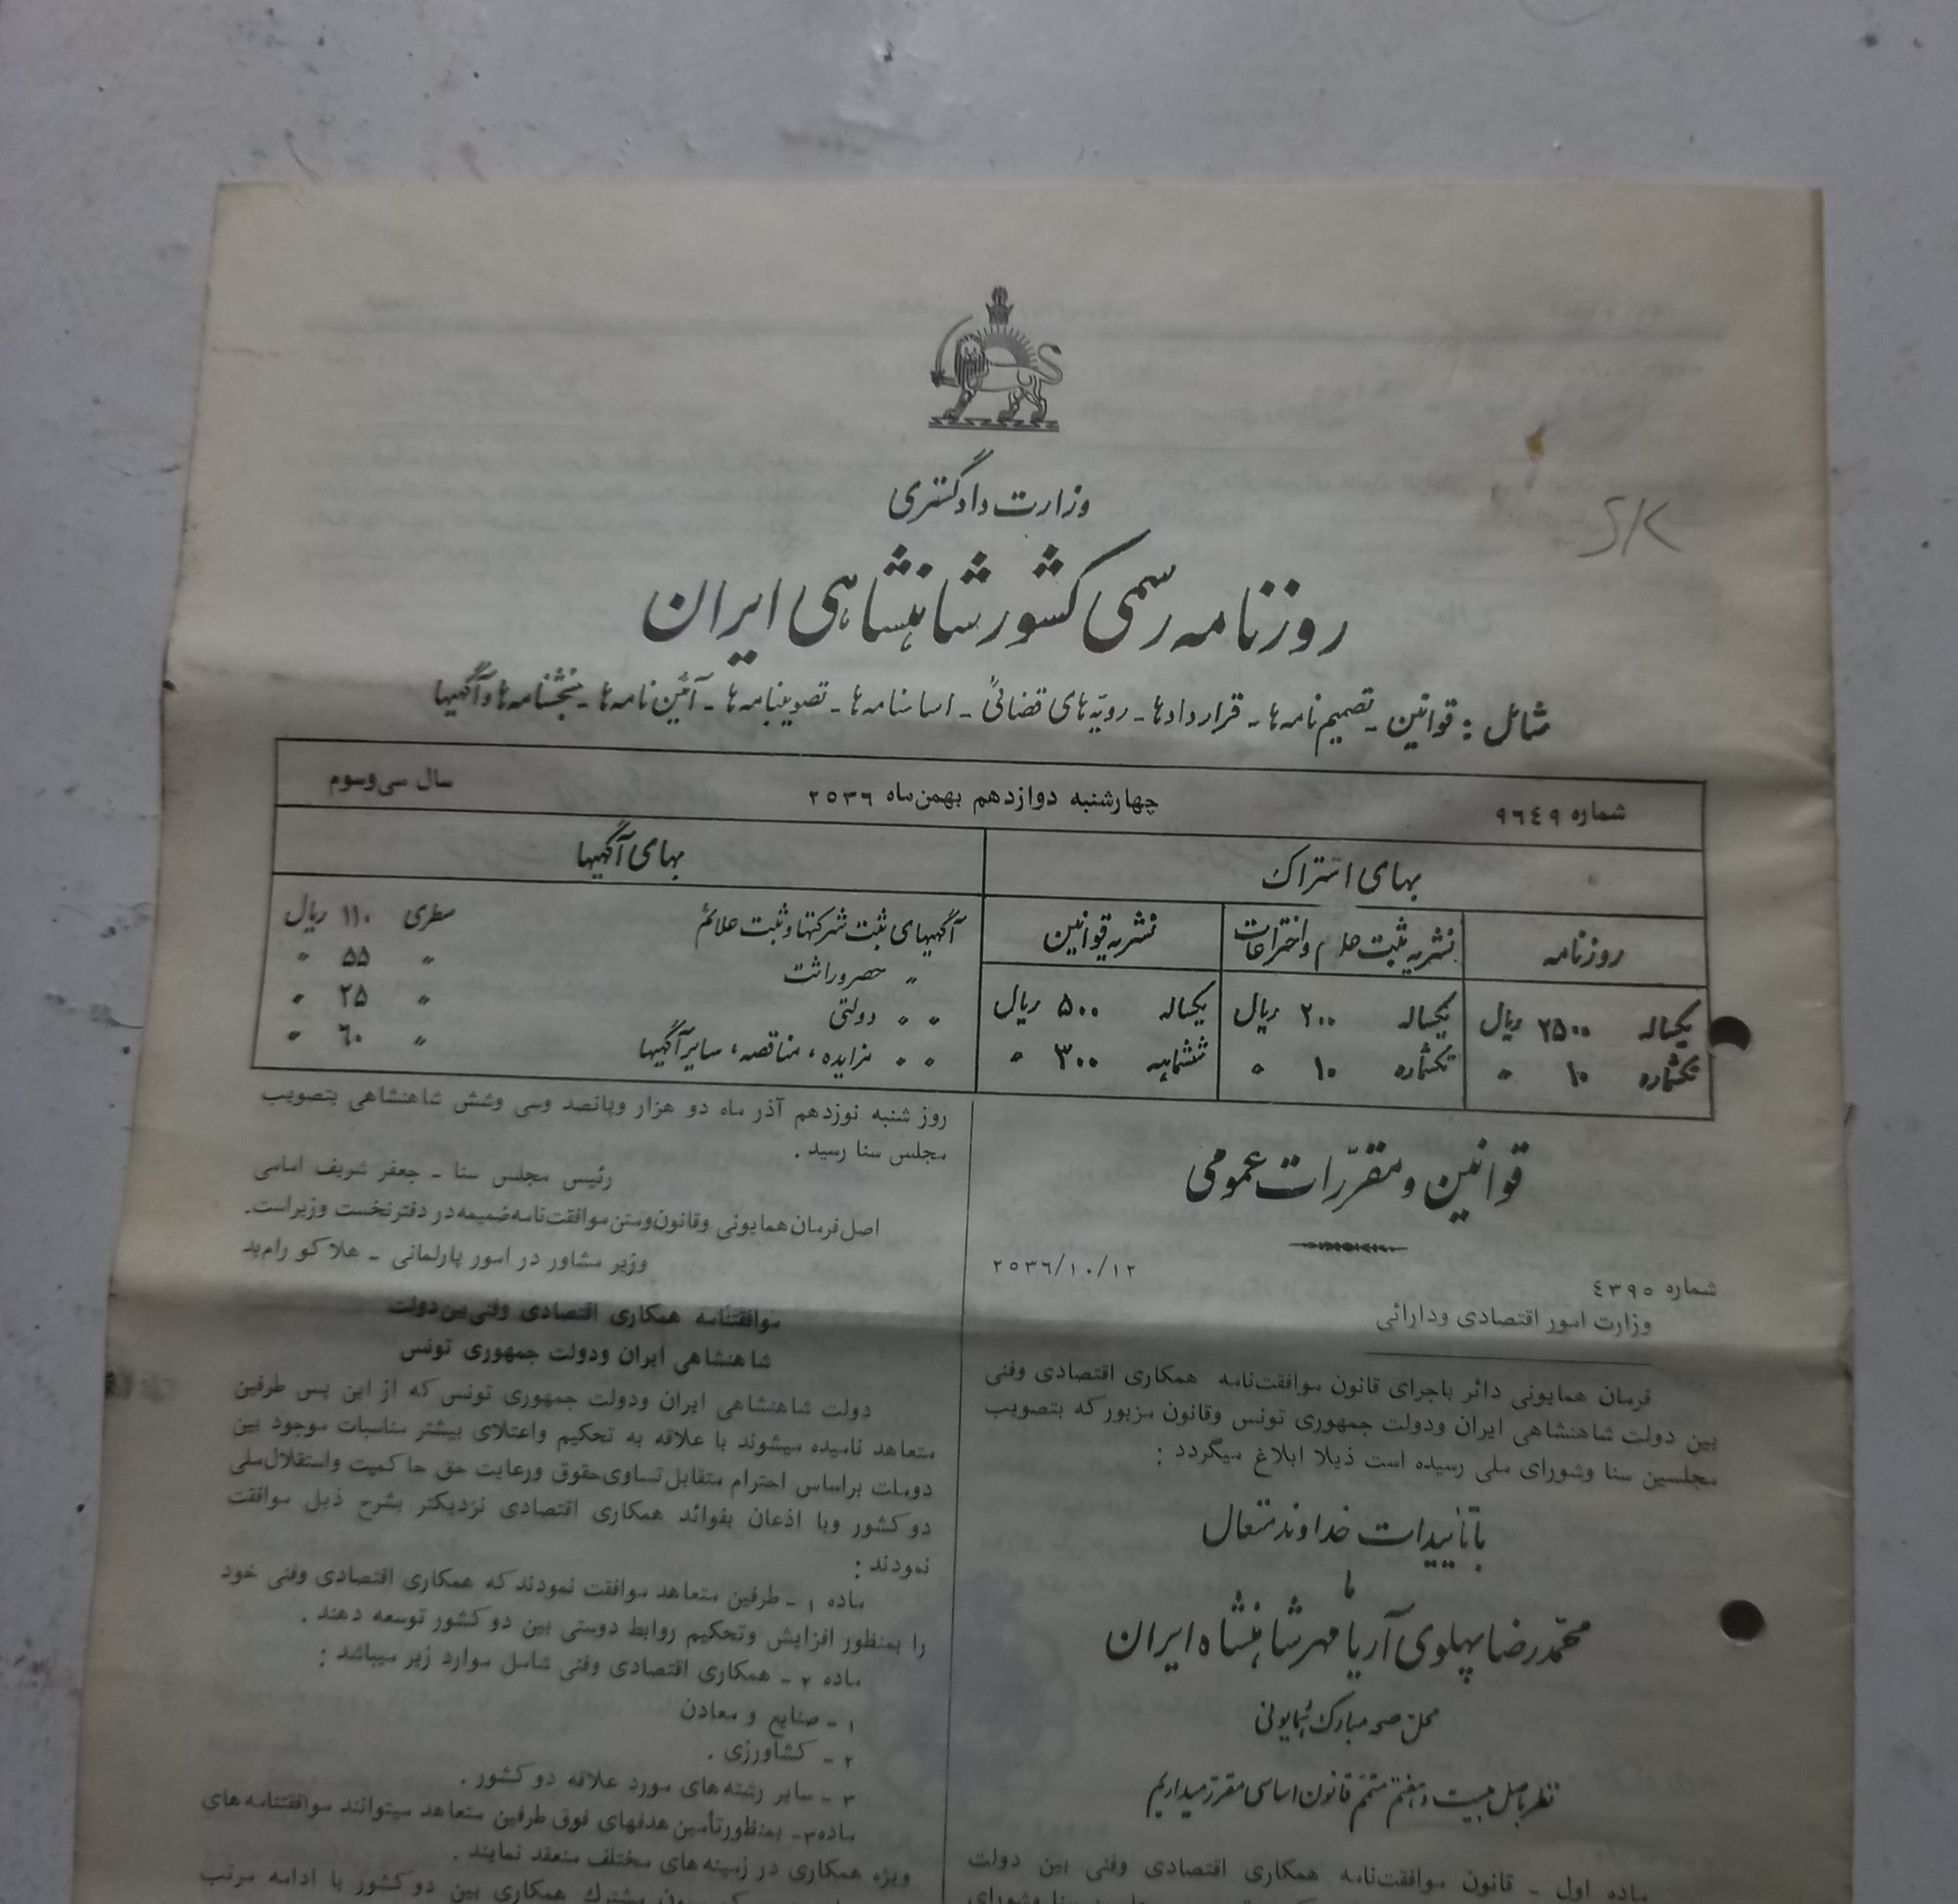 وزارت دادگستری
روزنامه رسمی کشور شاهنشاهی ایران
شامل : قوانین ـ تصمیم نامه‌ها ـ قراردادها ـ رویّه‌های قضائی ـ اساسنامه‌ها ـ تصویبنامه‌ها ـ آئین نامه‌ها ـ بخشنامه‌ها و آگهیها
شماره ٩٦٤٩ چهارشنبه دوازدهم بهمن‌ماه ٢٥٣٦ سال سی‌وسوم
بهای اشتراک
روزنامه نشریه ثبت علائم و اختراعات نشریه قوانین
یکساله ۲۵۰۰ ریال یکساله ۲۰۰ ریال یکساله ۵۰۰ ریال
تکشماره ۱۰ » تکشماره ۱۰ » ششماهه ۳۰۰ »
بهای آگهیها
آگهیهای ثبت شرکتها و ثبت علائم سطری ۱۱۰ ریال
» حصر وراثت » ۵۵ »
» » دولتی » ۲۵ »
» » مزایده ، مناقصه ، سایر آگهیها » ٦٠ »
قوانین و مقرّرات عمومی
شماره ٤٣٩٥ ٢٥٣٦/١٠/١٢
وزارت امور اقتصادی ودارائی
فرمان همایونی دائر باجرای قانون موافقت‌نامه همکاری اقتصادی وفنی
بین دولت شاهنشاهی ایران ودولت جمهوری تونس وقانون مزبور که بتصویب
مجلسین سنا وشورای ملی رسیده است ذیلا ابلاغ میگردد :
با تأییدات خداوند متعال
ما
محمّدرضا پهلوی آریامهر شاهنشاه ایران
محل صحه مبارک همایونی
نظر باصل بیست و هفتم متمّم قانون اساسی مقرّر میداریم
ماده اول ـ قانون موافقت‌نامه همکاری اقتصادی وفنی بین دولت
روز شنبه نوزدهم آذر ماه دو هزار وپانصد وسی وشش شاهنشاهی بتصویب
مجلس سنا رسید .
رئیس مجلس سنا ـ جعفر شریف امامی
اصل فرمان همایونی وقانون ومتن موافقت‌نامه ضمیمه در دفتر نخست وزیراست.
وزیر مشاور در امور پارلمانی ـ هلاکو رامبد
موافقتنامه همکاری اقتصادی وفنی بین دولت
شاهنشاهی ایران ودولت جمهوری تونس
دولت شاهنشاهی ایران ودولت جمهوری تونس که از این پس طرفین
متعاهد نامیده میشوند با علاقه به تحکیم واعتلای بیشتر مناسبات موجود بین
دوملت براساس احترام متقابل تساوی حقوق ورعایت حق حاکمیت واستقلال ملی
دو کشور وبا اذعان بفوائد همکاری اقتصادی نزدیکتر بشرح ذیل موافقت
نمودند :
ماده ۱ ـ طرفین متعاهد موافقت نمودند که همکاری اقتصادی وفنی خود
را بمنظور افزایش وتحکیم روابط دوستی بین دو کشور توسعه دهند .
ماده ۲ ـ همکاری اقتصادی وفنی شامل موارد زیر میباشد :
۱ ـ صنایع و معادن
۲ ـ کشاورزی .
۳ ـ سایر رشته‌های مورد علاقه دو کشور .
ماده۳ـ بمنظور تأمین هدفهای فوق طرفین متعاهد میتوانند موافقتنامه‌های
ویژه همکاری در زمینه‌های مختلف منعقد نمایند .
مشترک همکاری بین دو کشور با ادامه مرتب